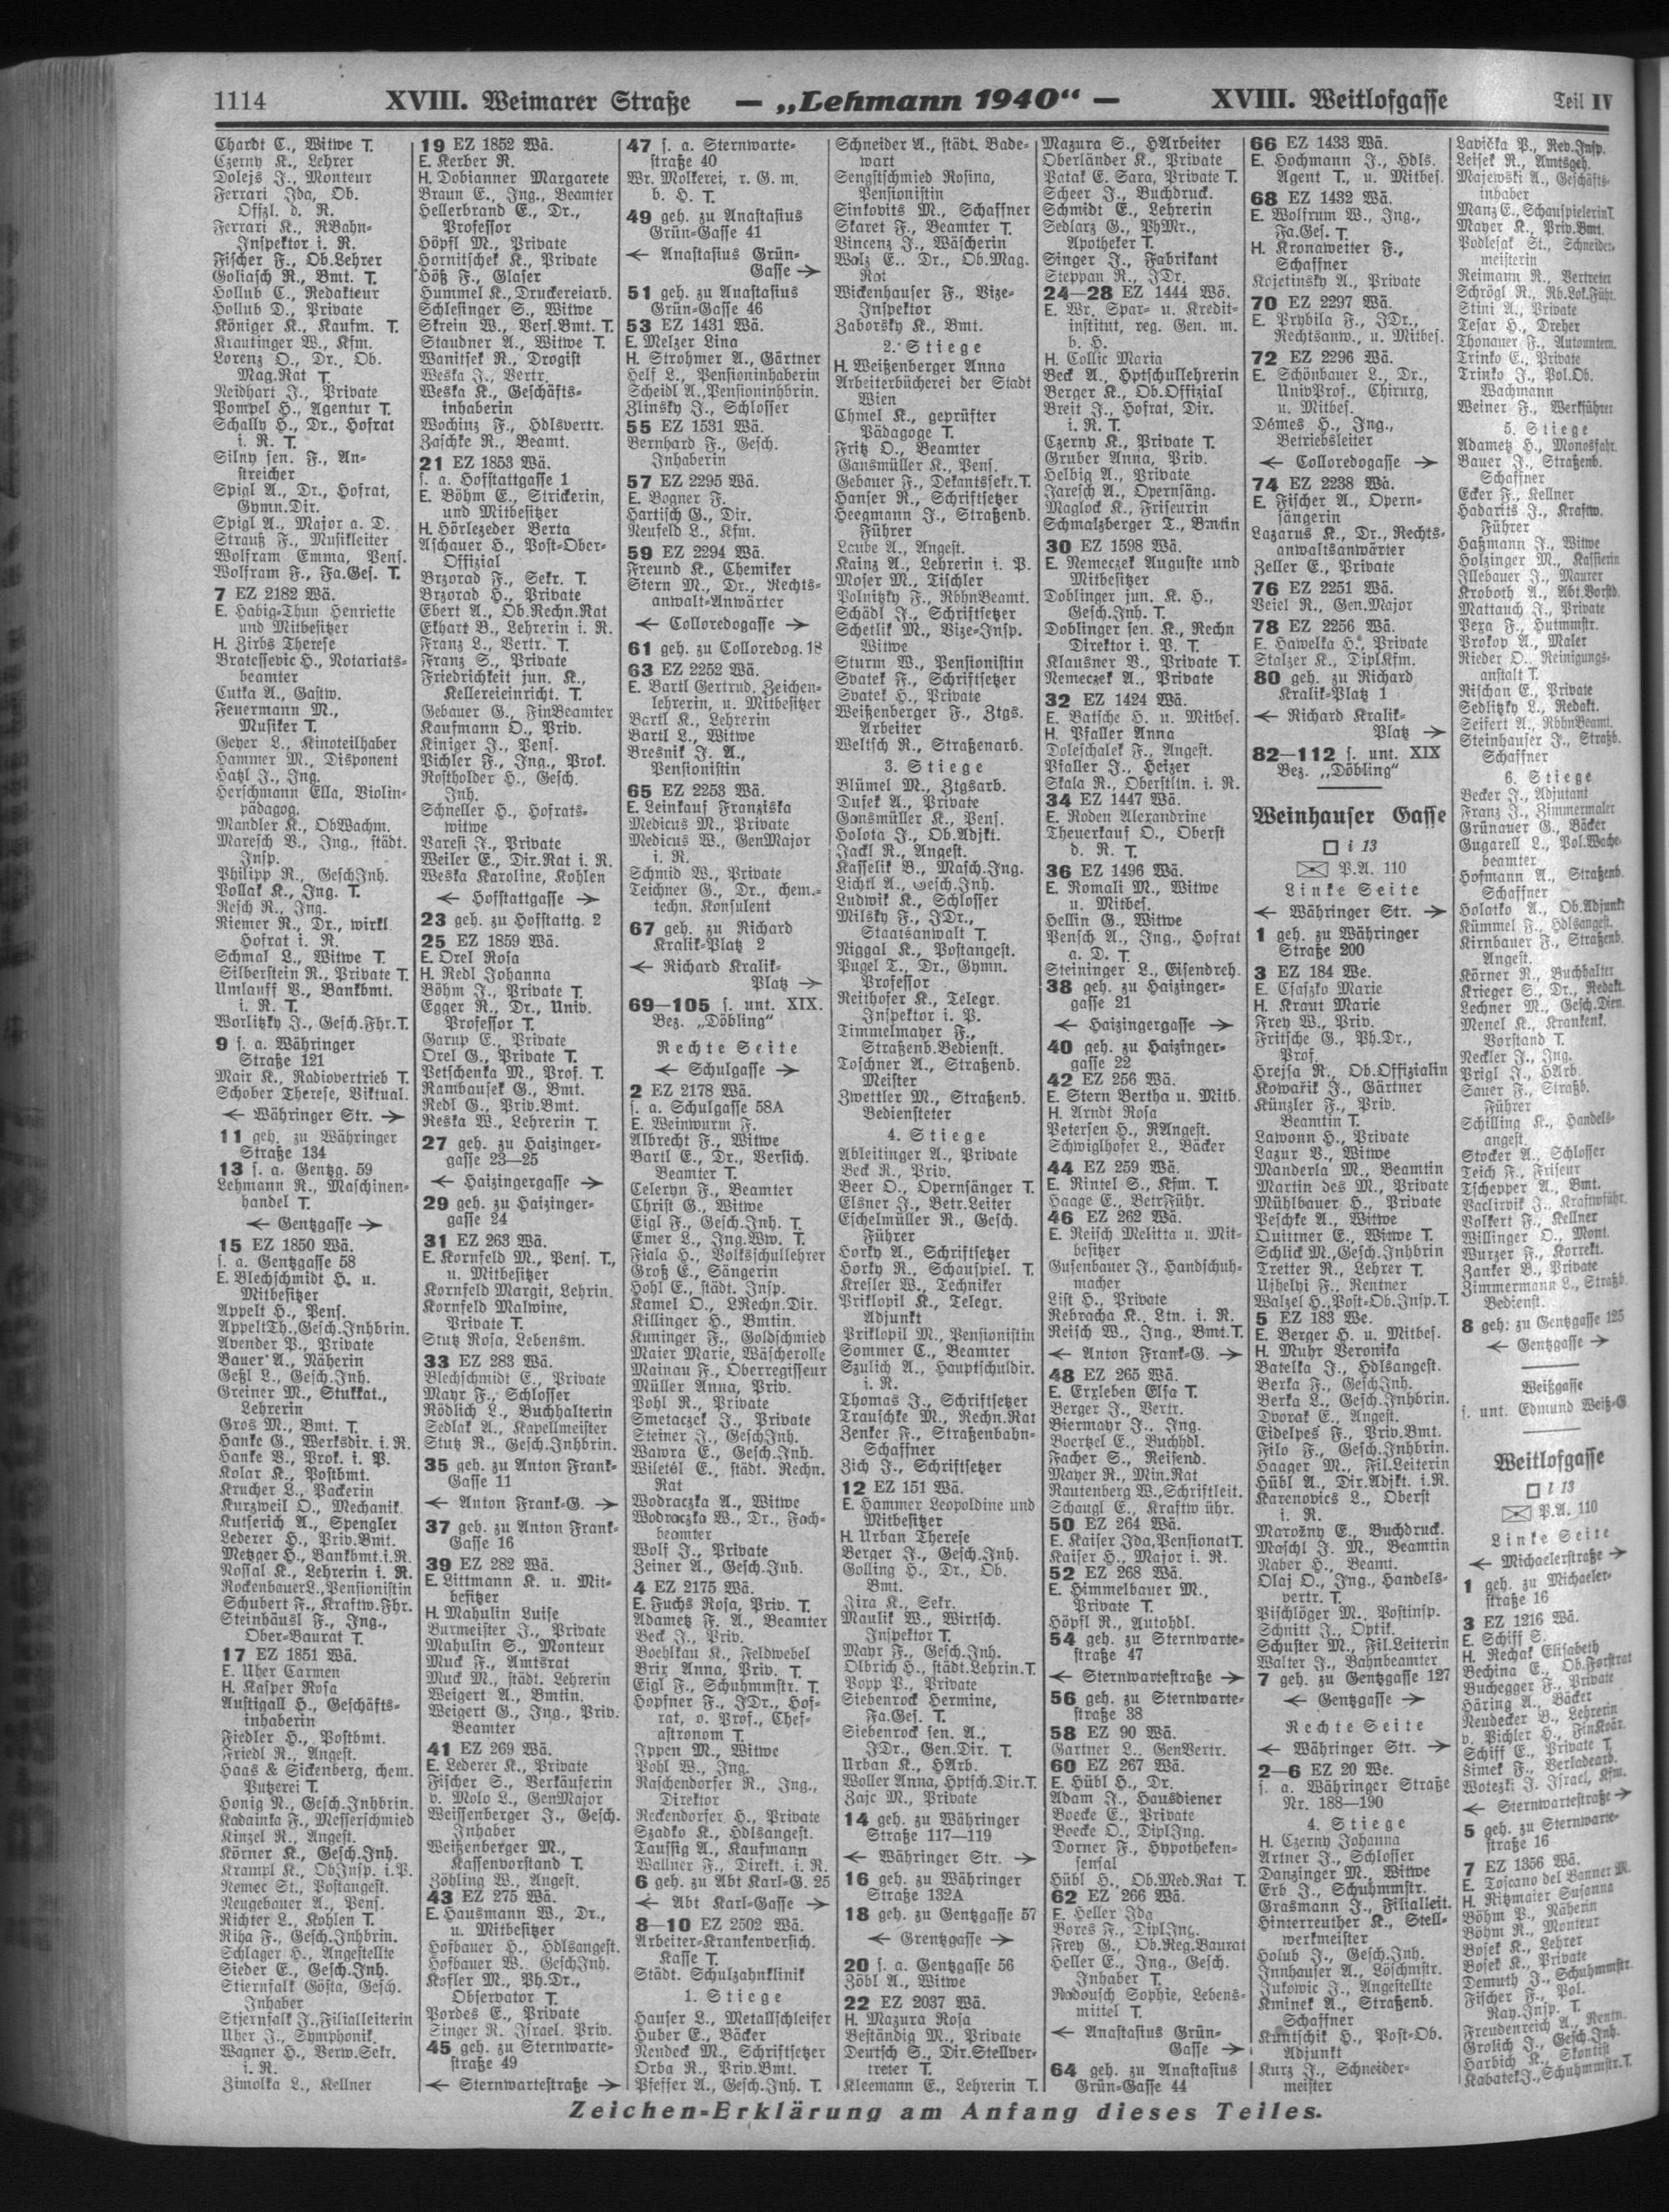 1114
XVIII. Weimarer Straße
— „Lehmann 1940“ —
XVIII. Weitlofgasse
Teil IV
Chardt C., Witwe T.
Czerny K., Lehrer
Dolejs J., Monteur
Ferrari Ida, Ob.
Offzl. d. R.
Ferrari K., RBahn-
Inspektor i. R.
Fischer F., Ob.Lehrer
Goliasch R., Bmt. T.
Hollub C., Redakteur
Hollub D., Private
Königer K., Kaufm. T.
Krautinger W., Kfm.
Lorenz O., Dr., Ob.
Mag.Rat T.
Neidhart J., Private
Pompel H., Agentur T.
Schally H., Dr., Hofrat
i. R. T.
Silny sen. F., An-
streicher
Spigl A., Dr., Hofrat,
Gymn.Dir.
Spigl A., Major a. D.
Strauß F., Musikleiter
Wolfram Emma, Pens.
Wolfram F., Fa.Ges. T.
7 EZ 2182 Wä.
E. Habig-Thun Henriette
und Mitbesitzer
H. Zirbs Therese
Bratessevic H., Notariats-
beamter
Cutka A., Gastw.
Feuermann M.,
Musiker T.
Geyer L., Kinoteilhaber
Hammer M., Disponent
Hatzl J., Ing.
Herschmann Ella, Violin-
pädagog.
Mandler K., ObWachm.
Maresch V., Ing., städt.
Insp.
Philipp R., GeschInh.
Pollak K., Ing. T.
Resch R., Ing.
Riemer R., Dr., wirkl.
Hofrat i. R.
Schmal L., Witwe T.
Silberstein R., Private T.
Umlauff V., Bankbmt.
i. R. T.
Worlitzky J., Gesch.Fhr.T.
9 s. a. Währinger
Straße 121
Mair K., Radiovertrieb T.
Schober Therese, Viktual.
← Währinger Str. →
11 geh. zu Währinger
Straße 134
13 s. a. Gentzg. 59
Lehmann R., Maschinen-
handel T.
← Gentzgasse →
15 EZ 1850 Wä.
s. a. Gentzgasse 58
E. Blechschmidt H. u.
Mitbesitzer
Appelt H., Pens.
AppeltTh.,Gesch.Inhbrin.
Avender P., Private
Bauer A., Näherin
Geßl L., Gesch.Inh.
Greiner M., Stukkat.,
Lehrerin
Gros M., Bmt. T.
Hanke G., Werksdir. i. R.
Hanke V., Prok. i. P.
Kolar K., Postbmt.
Krucher L., Packerin
Kurzweil O., Mechanik.
Kutserich A., Spengler
Lederer H., Priv.Bmt.
Metzger H., Bankbmt.i.R.
Nossal K., Lehrerin i. R.
RockenbauerL.,Pensionistin
Schubert F., Kraftw.Fhr.
Steinhäusl F., Ing.,
Ober-Baurat T.
17 EZ 1851 Wä.
E. Uher Carmen
H. Kasper Rosa
Austigall H., Geschäfts-
inhaberin
Fiedler H., Postbmt.
Friedl R., Angest.
Haas & Sickenberg, chem.
Putzerei T.
Honig N., Gesch.Inhbrin.
Kadainka F., Messerschmied
Kinzel R., Angest.
Körner K., Gesch.Inh.
Krampl K., ObInsp. i.P.
Nemec St., Postangest.
Neugebauer A., Pens.
Richter L., Kohlen T.
Riha F., Gesch.Inhbrin.
Schlager H., Angestellte
Sieder E., Gesch.Inh.
Stiernfalk Gösta, Gesch.
Inhaber
Stjernfalk J.,Filialleiterin
Uher J., Symphonik.
Wagner H., Verw.Sekr.
i. R.
Zimolka L., Kellner
19 EZ 1852 Wä.
E. Kerber R.
H. Dobianner Margarete
Braun E., Ing., Beamter
Hellerbrand E., Dr.,
Professor
Höpfl M., Private
Hornitschek K., Private
Höß F., Glaser
Hummel K., Druckereiarb.
Schlesinger S., Witwe
Skrein W., Vers.Bmt. T.
Staudner A., Witwe T.
Wanitsek R., Drogist
Weska J., Vertr.
Weska K., Geschäfts-
inhaberin
Wochinz F., Hdlsvertr.
Zaschke R., Beamt.
21 EZ 1853 Wä.
s. a. Hofstattgasse 1
E. Böhm E., Strickerin,
und Mitbesitzer
H. Hörlezeder Berta
Aschauer H., Post-Ober-
Offizial
Brzorad F., Sekr. T.
Brzorad H., Private
Ebert A., Ob.Rechn.Rat
Ekhart B., Lehrerin i. R.
Franz L., Vertr. T.
Franz S., Private
Friedrichkeit jun. K.,
Kellereieinricht. T.
Gebauer G., FinBeamter
Kaufmann O., Priv.
Kiniger J., Pens.
Pichler F., Ing., Prok.
Rostholder H., Gesch.
Inh.
Schneller H., Hofrats-
witwe
Varesi J., Private
Weiler E., Dir.Rat i. R.
Weska Karoline, Kohlen
← Hofstattgasse →
23 geh. zu Hofstattg. 2
25 EZ 1859 Wä.
E. Orel Rosa
H. Redl Johanna
Böhm J., Private T.
Egger R., Dr., Univ.
Professor T.
Garup E., Private
Orel G., Private T.
Petschenka M., Prof. T.
Rambausek G., Bmt.
Redl G., Priv.Bmt.
Reska W., Lehrerin T.
27 geh. zu Haizinger-
gasse 23—25
← Haizingergasse →
29 geh. zu Haizinger-
gasse 24
31 EZ 263 Wä.
E. Kornfeld M., Pens. T.,
u. Mitbesitzer
Kornfeld Margit, Lehrin.
Kornfeld Malwine,
Private T.
Stutz Rosa, Lebensm.
33 EZ 283 Wä.
Blechschmidt E., Private
Mayr F., Schlosser
Rödlich L., Buchhalterin
Sedlak A., Kapellmeister
Stutz R., Gesch.Inhbrin.
35 geh. zu Anton Frank-
Gasse 11
← Anton Frank-G. →
37 geh. zu Anton Frank-
Gasse 16
39 EZ 282 Wä.
E. Littmann K. u. Mit-
besitzer
H. Mahulin Luise
Burmeister J., Private
Mahulin S., Monteur
Muck F., Amtsrat
Muck M., städt. Lehrerin
Weigert A., Bmtin.
Weigert G., Ing., Priv.
Beamter
41 EZ 269 Wä.
E. Lederer K., Private
Fischer S., Verkäuferin
v. Molo L., GenMajor
Weissenberger J., Gesch.
Inhaber
Weißenberger M.,
Kassenvorstand T.
Zöhling W., Angest.
43 EZ 275 Wä.
E. Hausmann W., Dr.,
u. Mitbesitzer
Hofbauer H., Hdlsangest.
Hofbauer W. GeschInh.
Kofler M., Ph.Dr.,
Observator T.
Pordes E., Private
Singer R. Israel, Priv.
45 geh. zu Sternwarte-
straße 49
← Sternwartestraße →
47 s. a. Sternwarte-
straße 40
Wr. Molkerei, r. G. m.
b. H. T.
49 geh. zu Anastasius
Grün-Gasse 41
← Anastasius Grün-
Gasse →
51 geh. zu Anastasius
Grün-Gasse 46
53 EZ 1431 Wä.
E. Melzer Lina
H. Strohmer A., Gärtner
Helf L., Pensioninhaberin
Scheidl A.,Pensioninhbrin.
Zlinsky J., Schlosser
55 EZ 1531 Wä.
Bernhard F., Gesch.
Inhaberin
57 EZ 2295 Wä.
E. Bogner F.
Hartisch G., Dir.
Neufeld L., Kfm.
59 EZ 2294 Wä.
Freund K., Chemiker
Stern M., Dr., Rechts-
anwalt-Anwärter
← Colloredogasse →
61 geh. zu Colloredog. 18
63 EZ 2252 Wä.
E. Bartl Gertrud, Zeichen-
lehrerin, u. Mitbesitzer
Bartl K., Lehrerin
Bartl L., Witwe
Bresnik J. A.,
Pensionistin
65 EZ 2253 Wä.
E. Leinkauf Franziska
Medicus M., Private
Medicus W., GenMajor
i. R.
Schmid W., Private
Teichner G., Dr., chem.-
techn. Konsulent
67 geh. zu Richard
Kralik-Platz 2
← Richard Kralik-
Platz →
69—105 s. unt. XIX.
Bez. „Döbling“
Rechte Seite
← Schulgasse →
2 EZ 2178 Wä.
s. a. Schulgasse 58A
E. Weinwurm F.
Albrecht F., Witwe
Bartl E., Dr., Versich.
Beamter T.
Celeryn F., Beamter
Christ G., Witwe
Eigl F., Gesch.Inh. T.
Emer L., Ing.Ww. T.
Fiala H., Volksschullehrer
Groß E., Sängerin
Hohl E., städt. Insp.
Kamel O., LRechn.Dir.
Killinger H., Bmtin.
Kuninger F., Goldschmied
Maier Marie, Wäscherolle
Mainau F., Oberregisseur
Müller Anna, Priv.
Pohl R., Private
Smetaczek J., Private
Steiner J., GeschInh.
Wawra E., Gesch.Inh.
Wiletél E., städt. Rechn.
Rat
Wodraczka A., Witwe
Wodraczka W., Dr., Fach-
beamter
Wolf J., Private
Zeiner A., Gesch.Inh.
4 EZ 2175 Wä.
E. Fuchs Rosa, Priv. T.
Adametz F. A., Beamter
Beck J., Priv.
Boehlkau K., Feldwebel
Brix Anna, Priv. T.
Eigl F., Schuhmmstr. T.
Hopfner F., JDr., Hof-
rat, o. Prof., Chef-
astronom T.
Ippen M., Witwe
Pohl W., Ing.
Raschendorfer R., Ing.,
Direktor
Reckendorfer H., Private
Szadko K., Hdlsangest.
Taussig A., Kaufmann
Wallner F., Direkt. i. R.
6 geh. zu Abt Karl-G. 25
← Abt Karl-Gasse →
8—10 EZ 2502 Wä.
Arbeiter-Krankenversich.
Kasse T.
Städt. Schulzahnklinik
1. Stiege
Hauser L., Metallschleifer
Huber E., Bäcker
Neudeck M., Schriftsetzer
Orba R., Priv.Bmt.
Pfeffer A., Gesch.Inh. T.
Schneider A., städt. Bade-
wart
Sengstschmied Rosina,
Pensionistin
Sinkovits M., Schaffner
Skaret F., Beamter T.
Vincenz J., Wäscherin
Walz E., Dr., Ob.Mag.
Rat
Wickenhauser F., Vize-
Inspektor
Zaborsky K., Bmt.
2. Stiege
H. Weißenberger Anna
Arbeiterbücherei der Stadt
Wien
Chmel K., geprüfter
Pädagoge T.
Fritz O., Beamter
Gansmüller K., Pens.
Gebauer F., Dekantssekr.T.
Hanser R., Schriftsetzer
Heegmann J., Straßenb.
Führer
Laube A., Angest.
Kainz A., Lehrerin i. P.
Moser M., Tischler
Polnitzky F., RbhnBeamt.
Schädl J., Schriftsetzer
Schetlik M., Vize-Insp.
Witwe
Sturm W., Pensionistin
Svatek F., Schriftsetzer
Svatek H., Private
Weißenberger F., Ztgs.
Arbeiter
Weltsch R., Straßenarb.
3. Stiege
Blümel M., Ztgsarb.
Dusek A., Private
Gansmüller K., Pens.
Holota J., Ob.Adjkt.
Jackl R., Angest.
Kasselik B., Masch.Ing.
Lichtl A., Gesch.Inh.
Ludwik K., Schlosser
Milsky F., JDr.,
Staatsanwalt T.
Niggal K., Postangest.
Pugel T., Dr., Gymn.
Professor
Reithofer K., Telegr.
Inspektor i. P.
Timmelmayer F.,
Straßenb.Bedienst.
Toschner A., Straßenb.
Meister
Zwettler M., Straßenb.
Bediensteter
4. Stiege
Ableitinger A., Private
Beck R., Priv.
Beer O., Opernsänger T.
Elsner J., Betr.Leiter
Eschelmüller R., Gesch.
Führer
Horky A., Schriftsetzer
Horky R., Schauspiel. T.
Kresler W., Techniker
Priklopil K., Telegr.
Adjunkt
Priklopil M., Pensionistin
Sommer C., Beamter
Szulich A., Hauptschuldir.
i. R.
Thomas J., Schriftsetzer
Trauschke M., Rechn.Rat
Zenker F., Straßenbahn-
Schaffner
Zich J., Schriftsetzer
12 EZ 151 Wä.
E. Hammer Leopoldine und
Mitbesitzer
H. Urban Therese
Berger J., Gesch.Inh.
Golling H., Dr., Ob.
Bmt.
Jira K., Sekr.
Maulik W., Wirtsch.
Inspektor T.
Mayr F., Gesch.Inh.
Olbrich H., städt.Lehrin.T.
Popp P., Private
Siebenrock Hermine,
Fa.Ges. T.
Siebenrock sen. A.,
JDr., Gen.Dir. T.
Urban K., HArb.
Woller Anna, Hptsch.Dir.T.
Zajc M., Private
14 geh. zu Währinger
Straße 117—119
← Währinger Str. →
16 geh. zu Währinger
Straße 132A
18 geh. zu Gentzgasse 57
← Grentzgasse →
20 s. a. Gentzgasse 56
Zöbl A., Witwe
22 EZ 2037 Wä.
H. Mazura Rosa
Beständig M., Private
Deutsch S., Dir.Stellver-
treter T.
Kleemann E., Lehrerin T.
Mazura S., HArbeiter
Oberländer K., Private
Patak E. Sara, Private T.
Scheer J., Buchdruck.
Schmidt E., Lehrerin
Sedlarz G., PhMr.,
Apotheker T.
Singer J., Fabrikant
Steppan R., JDr.
24—28 EZ 1444 Wä.
E. Wr. Spar- u. Kredit-
institut, reg. Gen. m.
b. H.
H. Collic Maria
Beck A., Hptschullehrerin
Berger K., Ob.Offizial
Breit J., Hofrat, Dir.
i. R. T.
Czerny K., Private T.
Gruber Anna, Priv.
Helbig A., Private
Jaresch A., Opernsäng.
Maglock K., Friseurin
Schmalzberger T., Bmtin
30 EZ 1598 Wä.
E. Nemeczek Auguste und
Mitbesitzer
Doblinger jun. K. H.,
Gesch.Inh. T.
Doblinger sen. K., Rechn
Direktor i. P. T.
Klausner B., Private T.
Nemeczek A., Private
32 EZ 1424 Wä.
E. Batsche H. u. Mitbes.
H. Pfaller Anna
Doleschalek F., Angest.
Pfaller J., Heizer
Skala R., Oberstltn. i. R.
34 EZ 1447 Wä.
E. Roden Alexandrine
Theuerkauf O., Oberst
d. R. T.
36 EZ 1496 Wä.
E. Romali M., Witwe
u. Mitbes.
Hellin G., Witwe
Pensch A., Ing., Hofrat
a. D. T.
Steininger L., Eisendreh.
38 geh. zu Haizinger-
gasse 21
← Haizingergasse →
40 geh. zu Haizinger-
gasse 22
42 EZ 256 Wä.
E. Stern Bertha u. Mitb.
H. Arndt Rosa
Petersen H., RAngest.
Schwiglhofer L., Bäcker
44 EZ 259 Wä.
E. Rintel S., Kfm. T.
Haage E., BetrFühr.
46 EZ 262 Wä.
E. Reisch Melitta u. Mit-
besitzer
Gusenbauer J., Handschuh-
macher
List H., Private
Rebracha K., Ltn. i. R.
Reisch W., Ing., Bmt.T.
← Anton Frank-G. →
48 EZ 265 Wä.
E. Erxleben Elsa T.
Berger J., Vertr.
Biermayr J., Ing.
Boertzel E., Buchhdl.
Facher S., Reisend.
Mayer R., Min.Rat
Rautenberg W.,Schriftleit.
Schaugl E., Kraftw ühr.
50 EZ 264 Wä.
E. Kaiser Ida,PensionatT.
Kaiser H., Major i. R.
52 EZ 268 Wä.
E. Himmelbauer M.,
Private T.
Höpfl R., Autohdl.
54 geh. zu Sternwarte-
straße 47
← Sternwartestraße →
56 geh. zu Sternwarte-
straße 38
58 EZ 90 Wä.
Gartner L., GenVertr.
60 EZ 267 Wä.
E. Hübl H., Dr.
Adam J., Hausdiener
Boecke E., Private
Boecke O., DiplIng.
Dorner F., Hypotheken-
sensal
Hübl H., Ob.Med.Rat T.
62 EZ 266 Wä.
E. Heller Ida
Bores F., DiplIng.
Frey G., Ob.Reg.Baurat
Heller E., Ing., Gesch.
Inhaber T.
Radousch Sophie, Lebens-
mittel T.
← Anastasius Grün-
Gasse →
64 geh. zu Anastasius
Grün-Gasse 44
66 EZ 1433 Wä.
E. Hochmann J., Hdls.
Agent T., u. Mitbes.
68 EZ 1432 Wä.
E. Wolfrum W., Ing.,
Fa.Ges. T.
H. Kronaweiter F.,
Schaffner
Kojetinsky A., Private
70 EZ 2297 Wä.
E. Prybila F., JDr.,
Rechtsanw., u. Mitbes.
72 EZ 2296 Wä.
E. Schönbauer L., Dr.,
UnivProf., Chirurg,
u. Mitbes.
Démes H., Ing.,
Betriebsleiter
← Colloredogasse →
74 EZ 2238 Wä.
E. Fischer A., Opern-
sängerin
Lazarus K., Dr., Rechts-
anwaltsanwärter
Zeller E., Private
76 EZ 2251 Wä.
Veiel R., Gen.Major
78 EZ 2256 Wä.
E. Hawelka H., Private
Stalzer K., DiplKfm.
80 geh. zu Richard
Kralik-Platz 1
← Richard Kralik-
Platz →
82—112 s. unt. XIX
Bez. „Döbling“
Weinhauser Gasse
□ i 13
✉ P.A. 110
Linke Seite
← Währinger Str. →
1 geh. zu Währinger
Straße 200
3 EZ 184 We.
E. Csaszko Marie
H. Kraut Marie
Frey W., Priv.
Fritsche G., Ph.Dr.,
Prof.
Hrejsa R., Ob.Offizialin
Kowařik J., Gärtner
Künzler F., Priv.
Beamtin T.
Lawonn H., Private
Lazur V., Witwe
Manderla M., Beamtin
Martin des M., Private
Mühlbauer H., Private
Peschke A., Witwe
Quittner E., Witwe T.
Schlick M.,Gesch.Inhbrin
Tretter R., Lehrer T.
Ujhelyi F., Rentner
Walzel H.,Post-Ob.Insp.T.
5 EZ 183 We.
E. Berger H. u. Mitbes.
H. Muhr Veronika
Batelka J., Hdlsangest.
Berka F., GeschInh.
Berka L., Gesch.Inhbrin.
Dvorak E., Angest.
Eidelpes F., Priv.Bmt.
Filo F., Gesch.Inhbrin.
Haager M., Fil.Leiterin
Hübl A., Dir.Adjkt. i.R.
Karenovics L., Oberst
i. R.
Marozny E., Buchdruck.
Maschl J. M., Beamtin
Naber H., Beamt.
Olaj O., Ing., Handels-
vertr. T.
Pischlöger M., Postinsp.
Schnitt J., Optik.
Schuster M., Fil.Leiterin
Walter J., Bahnbeamter
7 geh. zu Gentzgasse 127
← Gentzgasse →
Rechte Seite
← Währinger Str. →
2—6 EZ 20 We.
s. a. Währinger Straße
Nr. 188—190
4. Stiege
H. Czerny Johanna
Artner J., Schlosser
Danzinger M., Witwe
Erb J., Schuhmmstr.
Grasmann J., Filialleit.
Hinterreuther K., Stell-
werkmeister
Holub J., Gesch.Inh.
Innhauser A., Löschmstr.
Jukowic J., Angestellte
Kminek A., Straßenb.
Schaffner
Kuntschik H., Post-Ob.
Adjunkt
Kurz J., Schneider-
meister
Lavička P., Rev.Insp.
Leisek R., Amtsgeh.
Majewski A., Geschäfts-
inhaber
Manz E., SchauspielerinT.
Mayer K., Priv.Bmt.
Podlesak St., Schneider-
meisterin
Reimann R., Vertreter
Schrögl R., Rb.Lok.Führ.
Stini A., Private
Tesar H., Dreher
Thonauer F., Autountern.
Trinko E., Private
Trinko J., Pol.Ob.
Wachmann
Weiner F., Werkführer
5. Stiege
Adametz H., Monosfahr.
Bauer J., Straßenb.
Schaffner
Ecker F., Kellner
Hadarits J., Kraftw.
Führer
Haßmann J., Witwe
Holzinger M., Kassierin
Illebauer J., Maurer
Kroboth A., Abt.Vorstd.
Mattauch J., Private
Pexa F., Hutmmstr.
Prokop A., Maler
Rieder O., Reinigungs-
anstalt T.
Rischan E., Private
Sedlitzky L., Redakt.
Seifert A., RbhnBeamt.
Steinhauser J., Straßb.
Schaffner
6. Stiege
Becker J., Adjutant
Franz J., Zimmermaler
Grünauer G., Bäcker
Gugarell L., Pol.Wache-
beamter
Hofmann A., Straßenb.
Schaffner
Holatko A., Ob.Adjunkt
Kümmel F., Hdlsangest.
Kirnbauer F., Straßenb.
Angest.
Körner R., Buchhalter
Krieger S., Dr., Redakt.
Lechner M., Gesch.Dien.
Menel K., Krankenk.
Vorstand T.
Neckler J., Ing.
Prigl J., HArb.
Sauer F., Straßb.
Führer
Schilling K., Handels-
angest.
Stocker A., Schlosser
Teich F., Friseur
Tschepper A., Bmt.
Vaclirvik J., Kraftwführ.
Volkert F., Kellner
Willinger O., Mont.
Wurzer F., Korrekt.
Zanker B., Private
Zimmermann L., Straßb.
Bedienst.
8 geh. zu Gentzgasse 125
← Gentzgasse →
Weißgasse
s. unt. Edmund Weiß-G.
Weitlofgasse
□ l 13
✉ P.A. 110
Linke Seite
← Michaelerstraße →
1 geh. zu Michaeler-
straße 16
3 EZ 1216 Wä.
E. Schiff S.
H. Rechak Elisabeth
Bechina E., Ob.Forstrat
Buchegger F., Private
Häring A., Bäcker
Neudecker B., Lehrerin
v. Pichler H., FinKoär.
Schiff E., Private T.
Simek F., Verladearb.
Wotezki J. Israel, Kfm.
← Sternwartestraße →
5 geh. zu Sternwarte-
straße 16
7 EZ 1356 Wä.
E. Toscano del Banner M.
H. Ritzmaier Susanna
Böhm P., Näherin
Böhm R., Monteur
Bosek K., Lehrer
Bosek K., Private
Demuth J., Schuhmmstr.
Fischer F., Pol.
Ray.Insp. T.
Freudenreich A., Rentn.
Grolich J., Gesch.Inh.
Harbich K., Skontist
KabatekJ.,Schuhmmstr.T.
Zeichen-Erklärung am Anfang dieses Teiles.